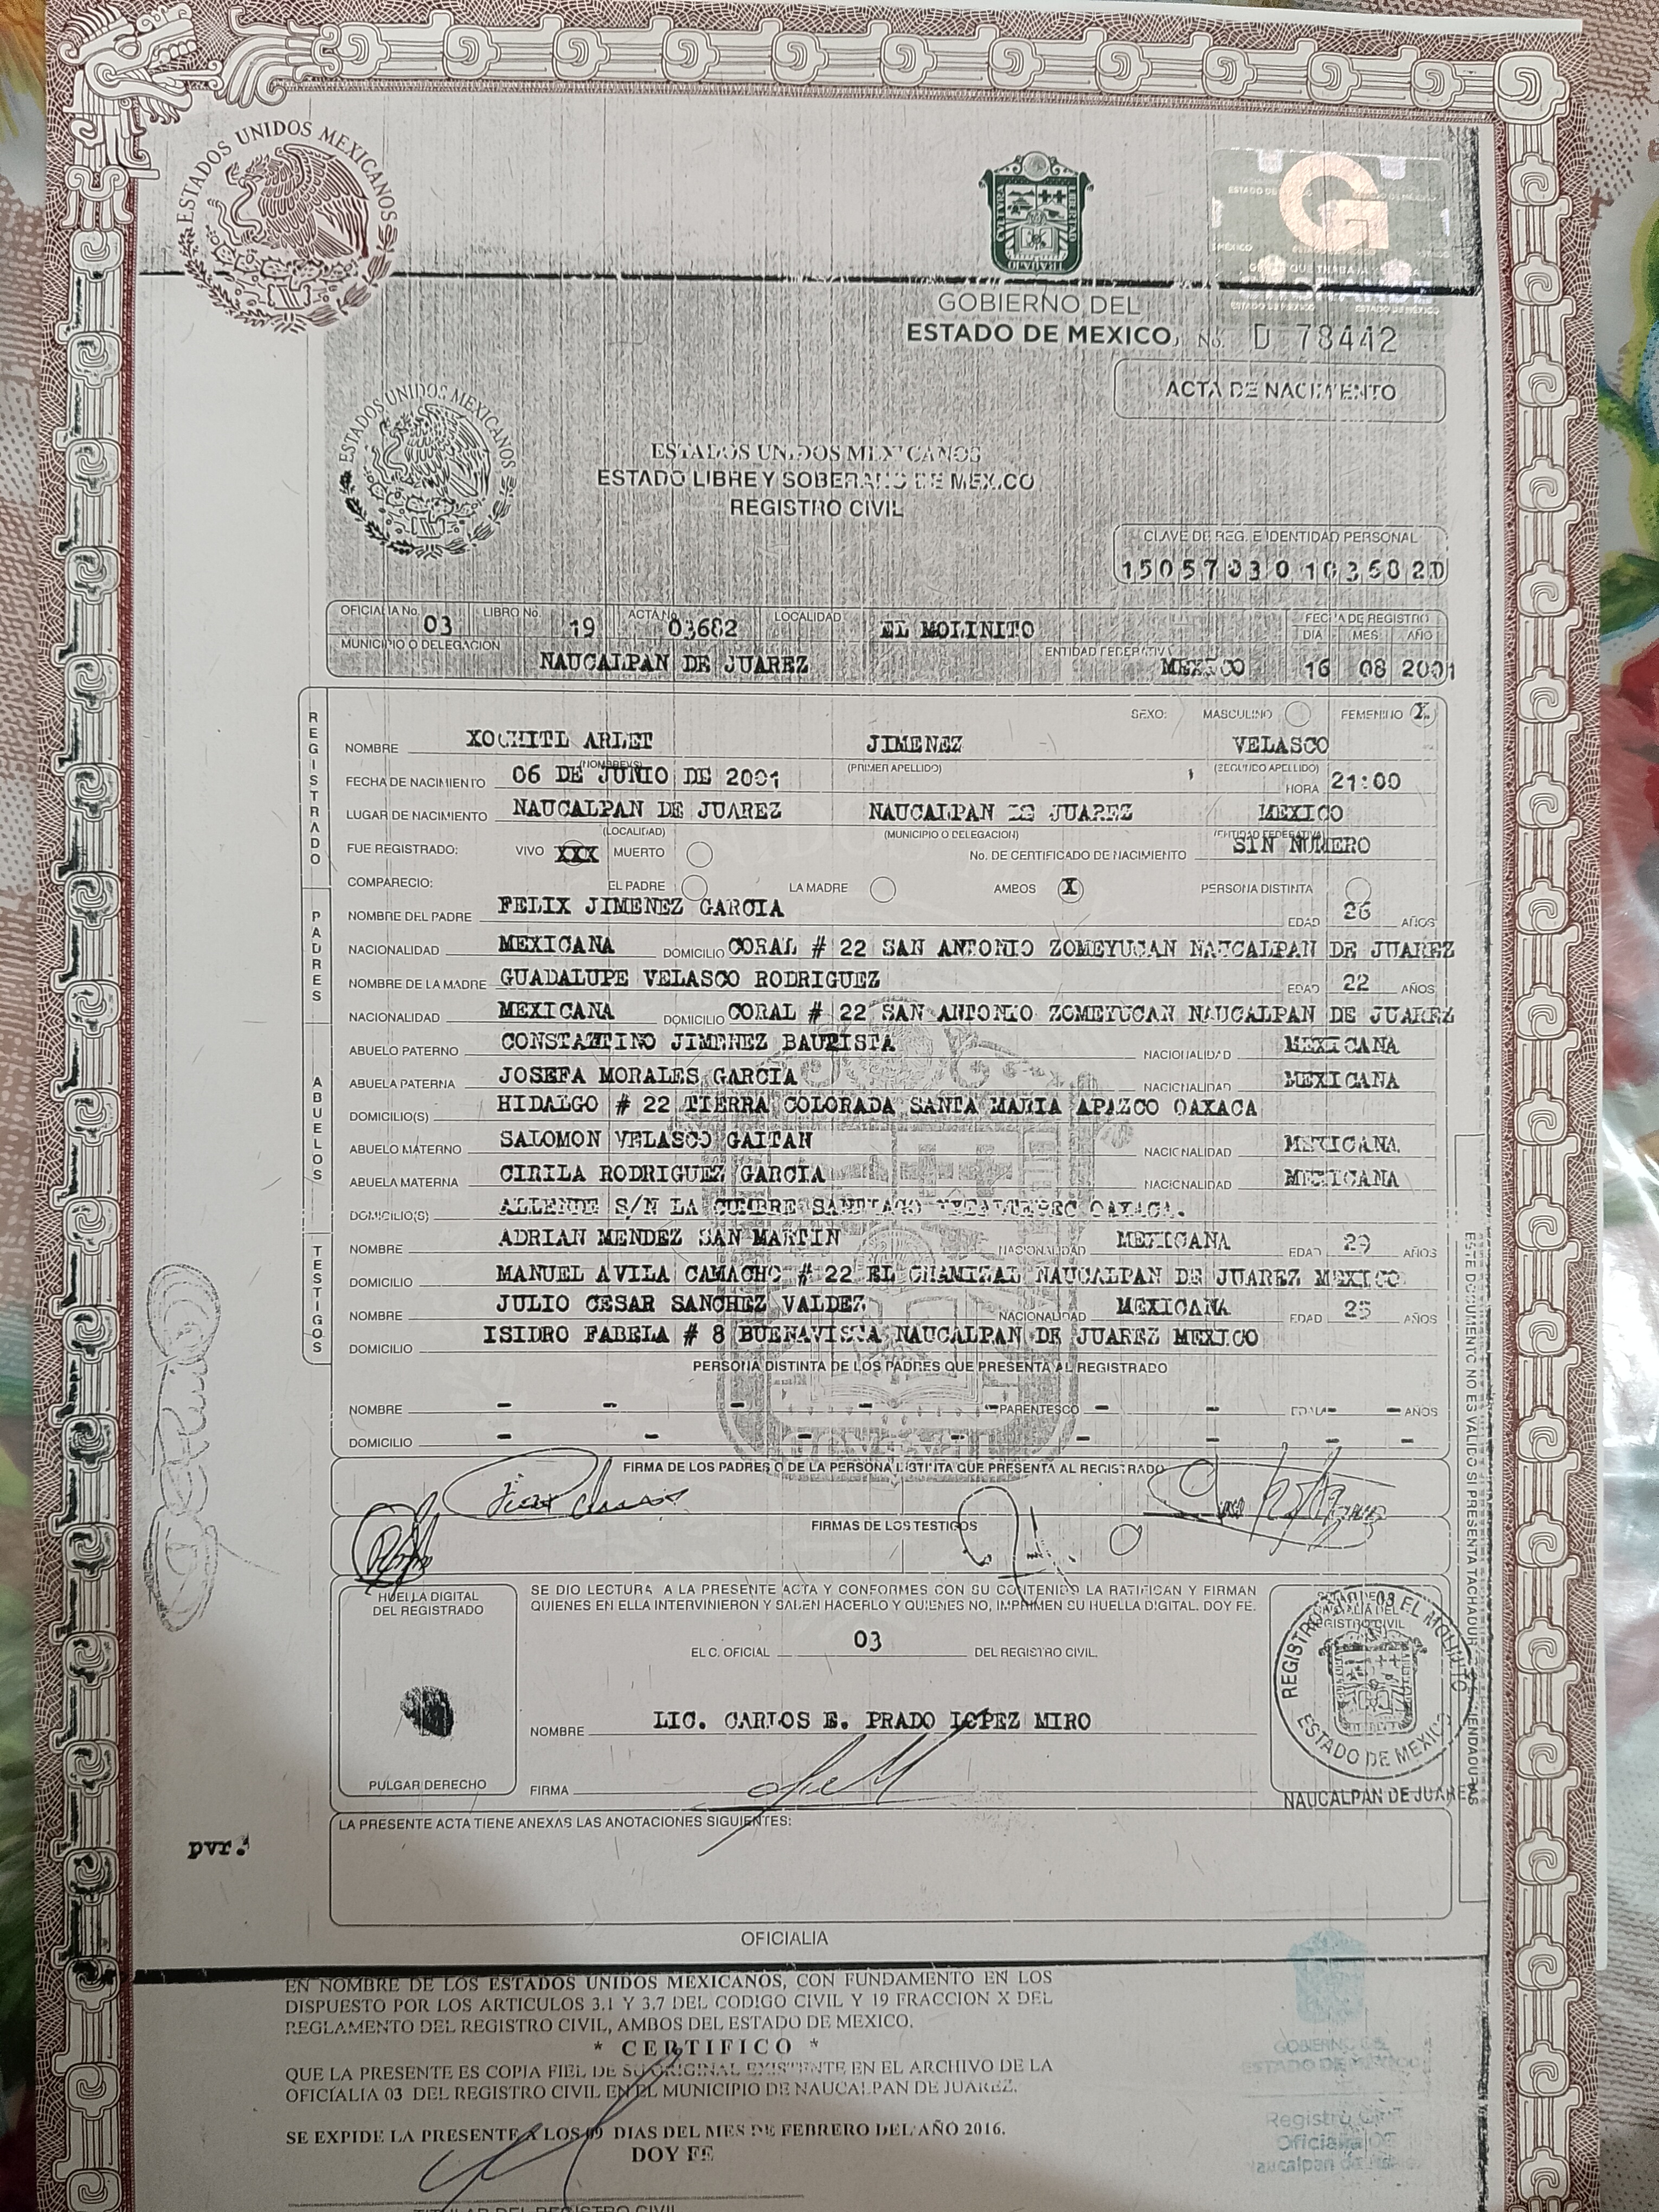 ESTADOS UNIDOS MEXICANOS
GOBIERNO DEL
ESTADO DE MEXICO
No. D 78442
ACTA DE NACIMIENTO
ESTADOS UNIDOS MEXICANOS
ESTADOS UNIDOS MEXICANOS
ESTADO LIBRE Y SOBERANO DE MEXICO
REGISTRO CIVIL
CLAVE DE REG. E IDENTIDAD PERSONAL
OFICIALIA No. 03 LIBRO No. 19 ACTA No. 03682 LOCALIDAD EL MOLINITO FECHA DE REGISTRO
DIA MES AÑO
MUNICIPIO O DELEGACION NAUCALPAN DE JUAREZ ENTIDAD FEDERATIVA MEXICO 16 08 2001
REGISTRADO
SEXO: MASCULINO FEMENINO X
NOMBRE XOCHITL ARLET JIMENEZ VELASCO
(NOMBRE(S) (PRIMER APELLIDO) (SEGUNDO APELLIDO)
FECHA DE NACIMIENTO 06 DE JUNIO DE 2001 HORA 21:00
LUGAR DE NACIMIENTO NAUCALPAN DE JUAREZ NAUCALPAN DE JUAREZ MEXICO
(LOCALIDAD) (MUNICIPIO O DELEGACION) (ENTIDAD FEDERATIVA)
FUE REGISTRADO: VIVO XXX MUERTO No. DE CERTIFICADO DE NACIMIENTO SIN NUMERO
COMPARECIO: EL PADRE LA MADRE AMBOS X PERSONA DISTINTA
PADRES
NOMBRE DEL PADRE FELIX JIMENEZ GARCIA EDAD 26 AÑOS
NACIONALIDAD MEXICANA DOMICILIO CORAL # 22 SAN ANTONIO ZOMEYUCAN NAUCALPAN DE JUAREZ
NOMBRE DE LA MADRE GUADALUPE VELASCO RODRIGUEZ EDAD 22 AÑOS
NACIONALIDAD MEXICANA DOMICILIO CORAL # 22 SAN ANTONIO ZOMEYUCAN NAUCALPAN DE JUAREZ
ABUELOS
ABUELO PATERNO CONSTANTINO JIMENEZ BAUTISTA NACIONALIDAD MEXICANA
ABUELA PATERNA JOSEFA MORALES GARCIA NACIONALIDAD MEXICANA
DOMICILIO(S) HIDALGO # 22 TIERRA COLORADA SANTA MARIA APAZCO OAXACA
ABUELO MATERNO SALOMON VELASCO GAITAN NACIONALIDAD MEXICANA
ABUELA MATERNA CIRILA RODRIGUEZ GARCIA NACIONALIDAD MEXICANA
DOMICILIO(S) ALLENDE S/N LA CUMBRE SANTIAGO OAXACA.
TESTIGOS
NOMBRE ADRIAN MENDEZ SAN MARTIN NACIONALIDAD MEXICANA EDAD 29 AÑOS
DOMICILIO MANUEL AVILA CAMACHO # 22 EL CHAMIZAL NAUCALPAN DE JUAREZ MEXICO
NOMBRE JULIO CESAR SANCHEZ VALDEZ NACIONALIDAD MEXICANA EDAD 25 AÑOS
DOMICILIO ISIDRO FABELA # 8 BUENAVISTA NAUCALPAN DE JUAREZ MEXICO
PERSONA DISTINTA DE LOS PADRES QUE PRESENTA AL REGISTRADO
NOMBRE - - - - - PARENTESCO - - EDAD - - AÑOS
DOMICILIO - - - - - - - -
FIRMA DE LOS PADRES O DE LA PERSONA DISTINTA QUE PRESENTA AL REGISTRADO
FIRMAS DE LOS TESTIGOS
HUELLA DIGITAL
DEL REGISTRADO
SE DIO LECTURA A LA PRESENTE ACTA Y CONFORMES CON SU CONTENIDO LA RATIFICAN Y FIRMAN
QUIENES EN ELLA INTERVINIERON Y SABEN HACERLO Y QUIENES NO, IMPRIMEN SU HUELLA DIGITAL. DOY FE.
EL C. OFICIAL 03 DEL REGISTRO CIVIL.
NOMBRE LIC. CARLOS E. PRADO LOPEZ MIRO
PULGAR DERECHO
FIRMA
REGISTRO CIVIL 03 EL MOLINITO
ESTADO DE MEXICO
NAUCALPAN DE JUAREZ
ESTE DOCUMENTO NO ES VALIDO SI PRESENTA TACHADURAS O ENMENDADURAS
LA PRESENTE ACTA TIENE ANEXAS LAS ANOTACIONES SIGUIENTES:
pvr.
OFICIALIA
EN NOMBRE DE LOS ESTADOS UNIDOS MEXICANOS, CON FUNDAMENTO EN LOS
DISPUESTO POR LOS ARTICULOS 3.1 Y 3.7 DEL CODIGO CIVIL Y 19 FRACCION X DEL
REGLAMENTO DEL REGISTRO CIVIL, AMBOS DEL ESTADO DE MEXICO.
* CERTIFICO *
QUE LA PRESENTE ES COPIA FIEL DE SU ORIGINAL EXISTENTE EN EL ARCHIVO DE LA
OFICIALIA 03 DEL REGISTRO CIVIL EN EL MUNICIPIO DE NAUCALPAN DE JUAREZ.
SE EXPIDE LA PRESENTE A LOS 09 DIAS DEL MES DE FEBRERO DEL AÑO 2016.
DOY FE
GOBIERNO DEL
ESTADO DE MÉXICO
Registro Civil
Oficialía
Naucalpan de
TITULAR DEL REGISTRO CIVIL